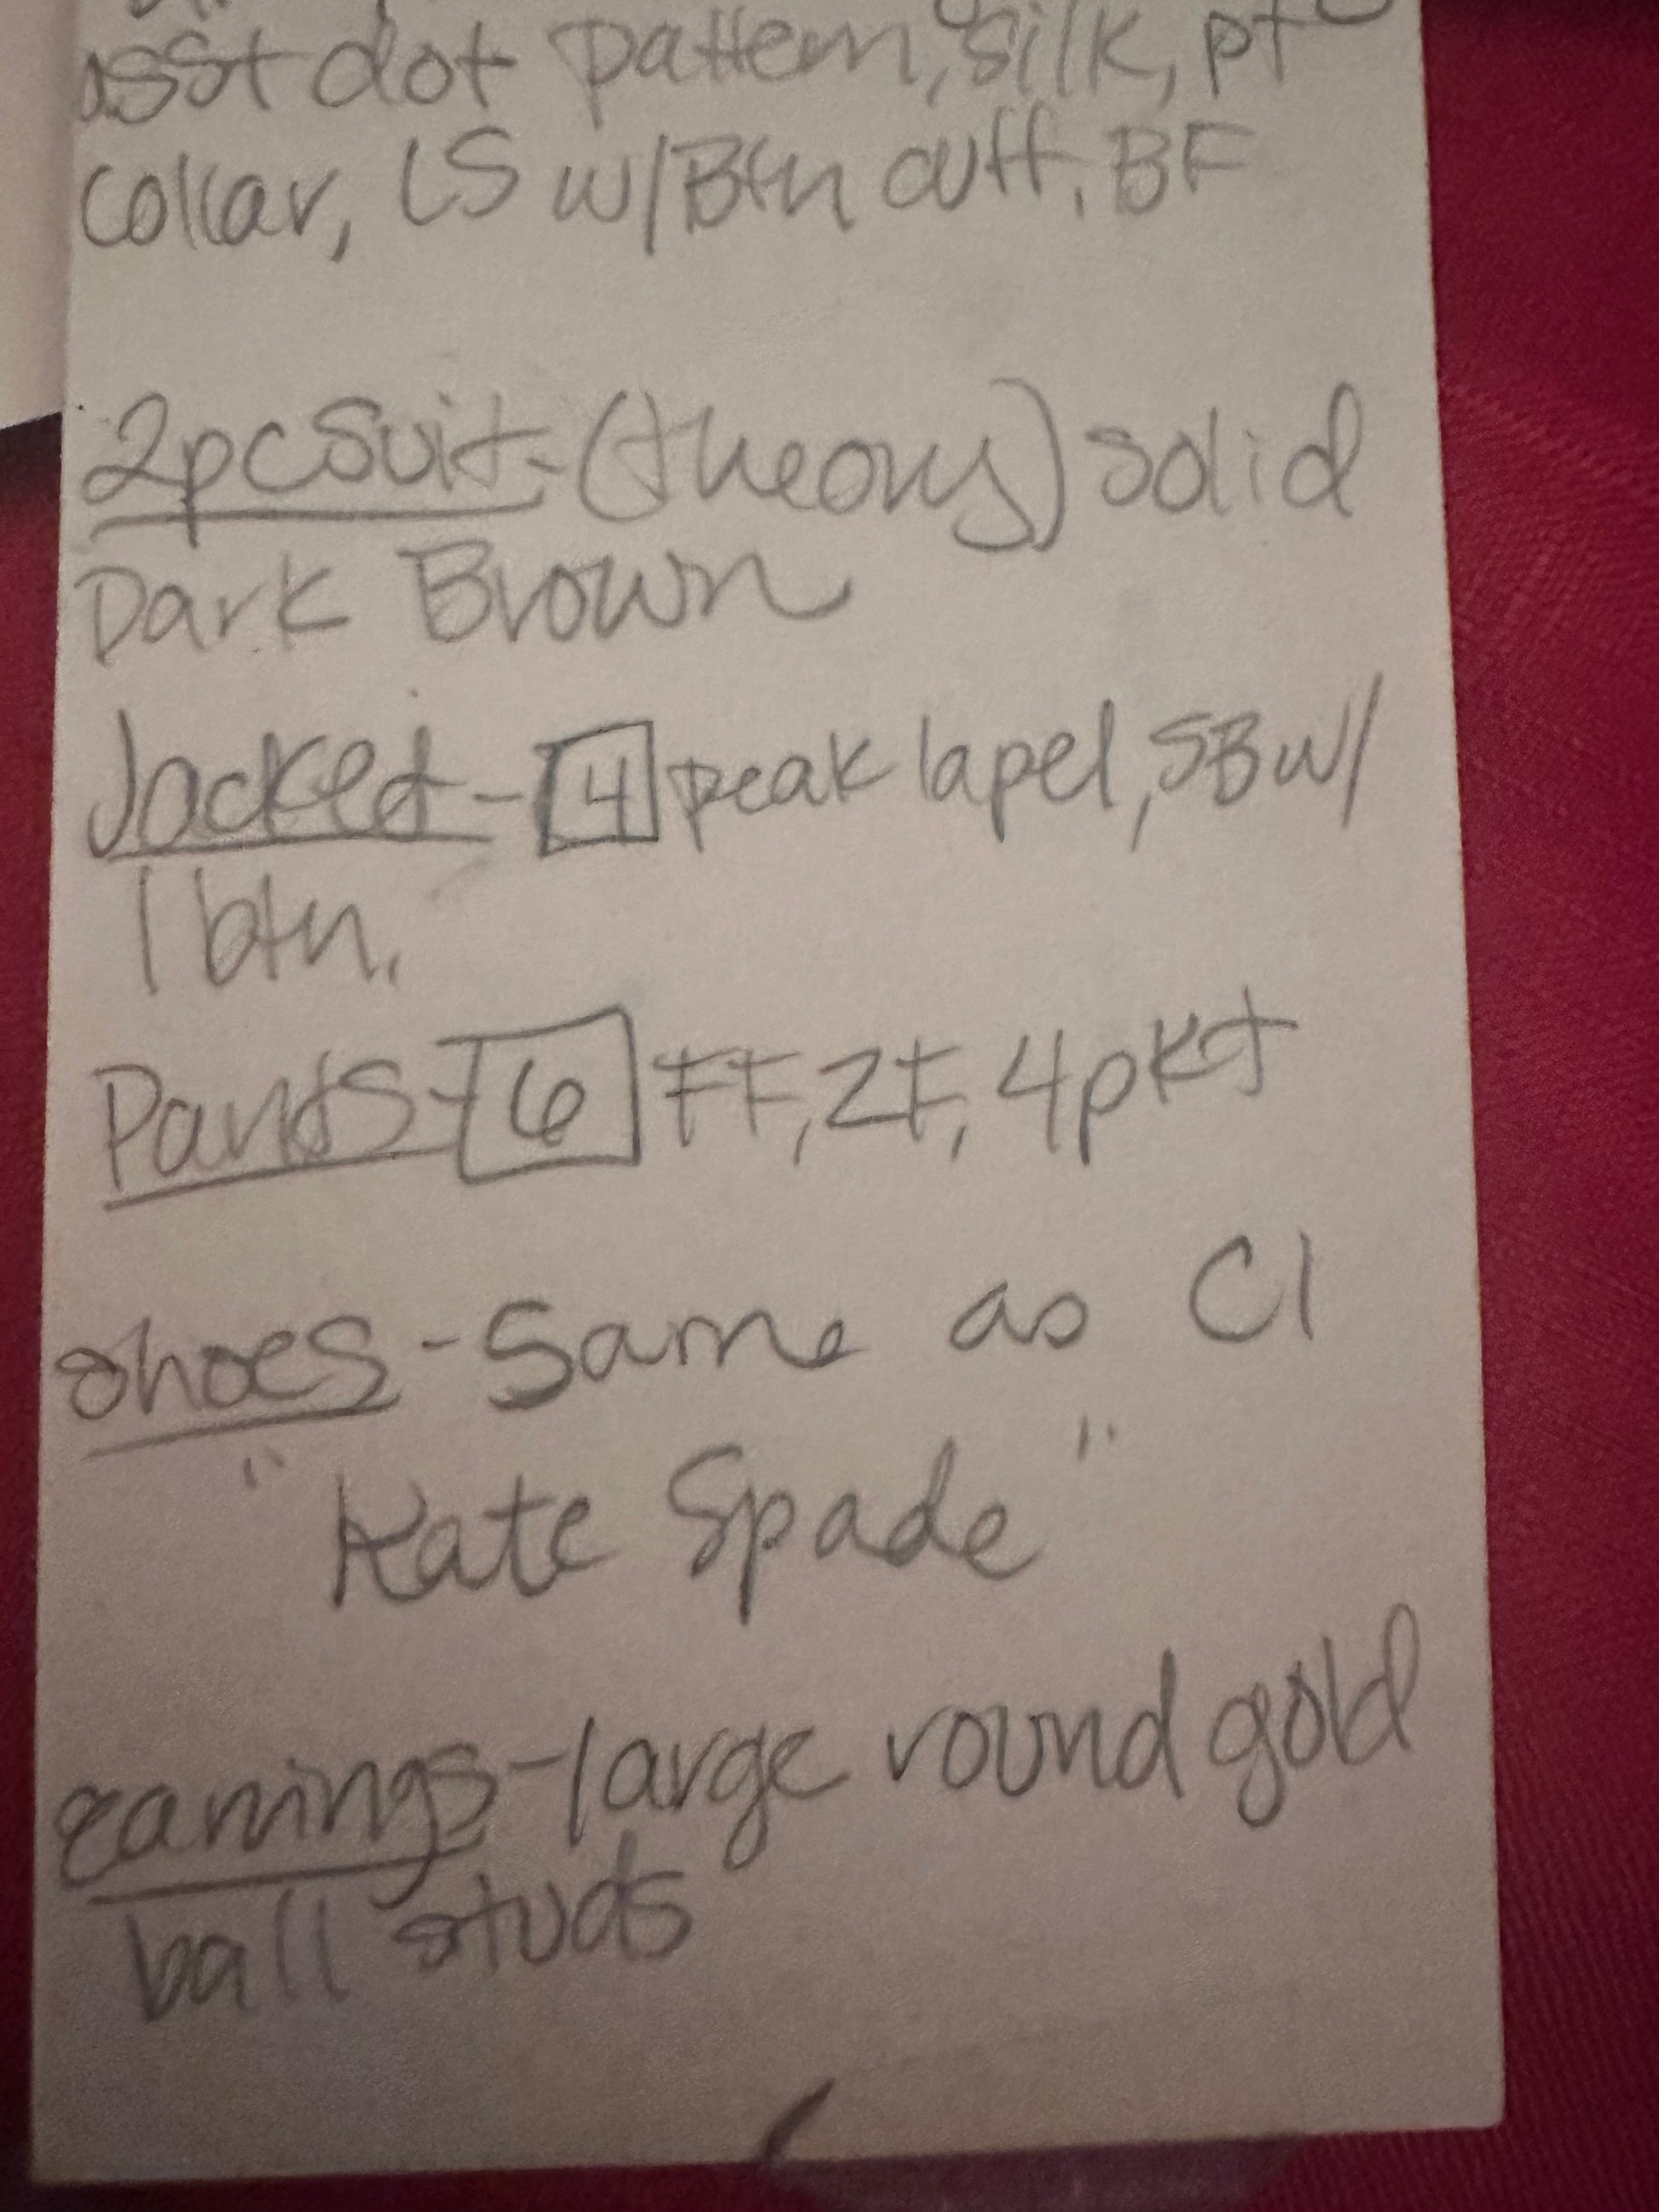 asst dot pattern, silk, pt
collar, LS w/Btn cuff, BF
2pc Suit - (theory) solid
Dark Brown
Jacket - 4 peak lapel, SB w/
1 btn.
Pants - 6 FF, ZF, 4pkt
Shoes - Same as C1
"Kate Spade"
earrings - large round gold
ball studs